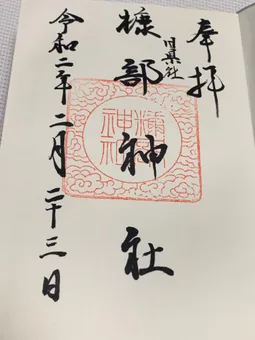 奉拝
旧県社
糠部神社
令和二年二月二十三日
糠部
神社